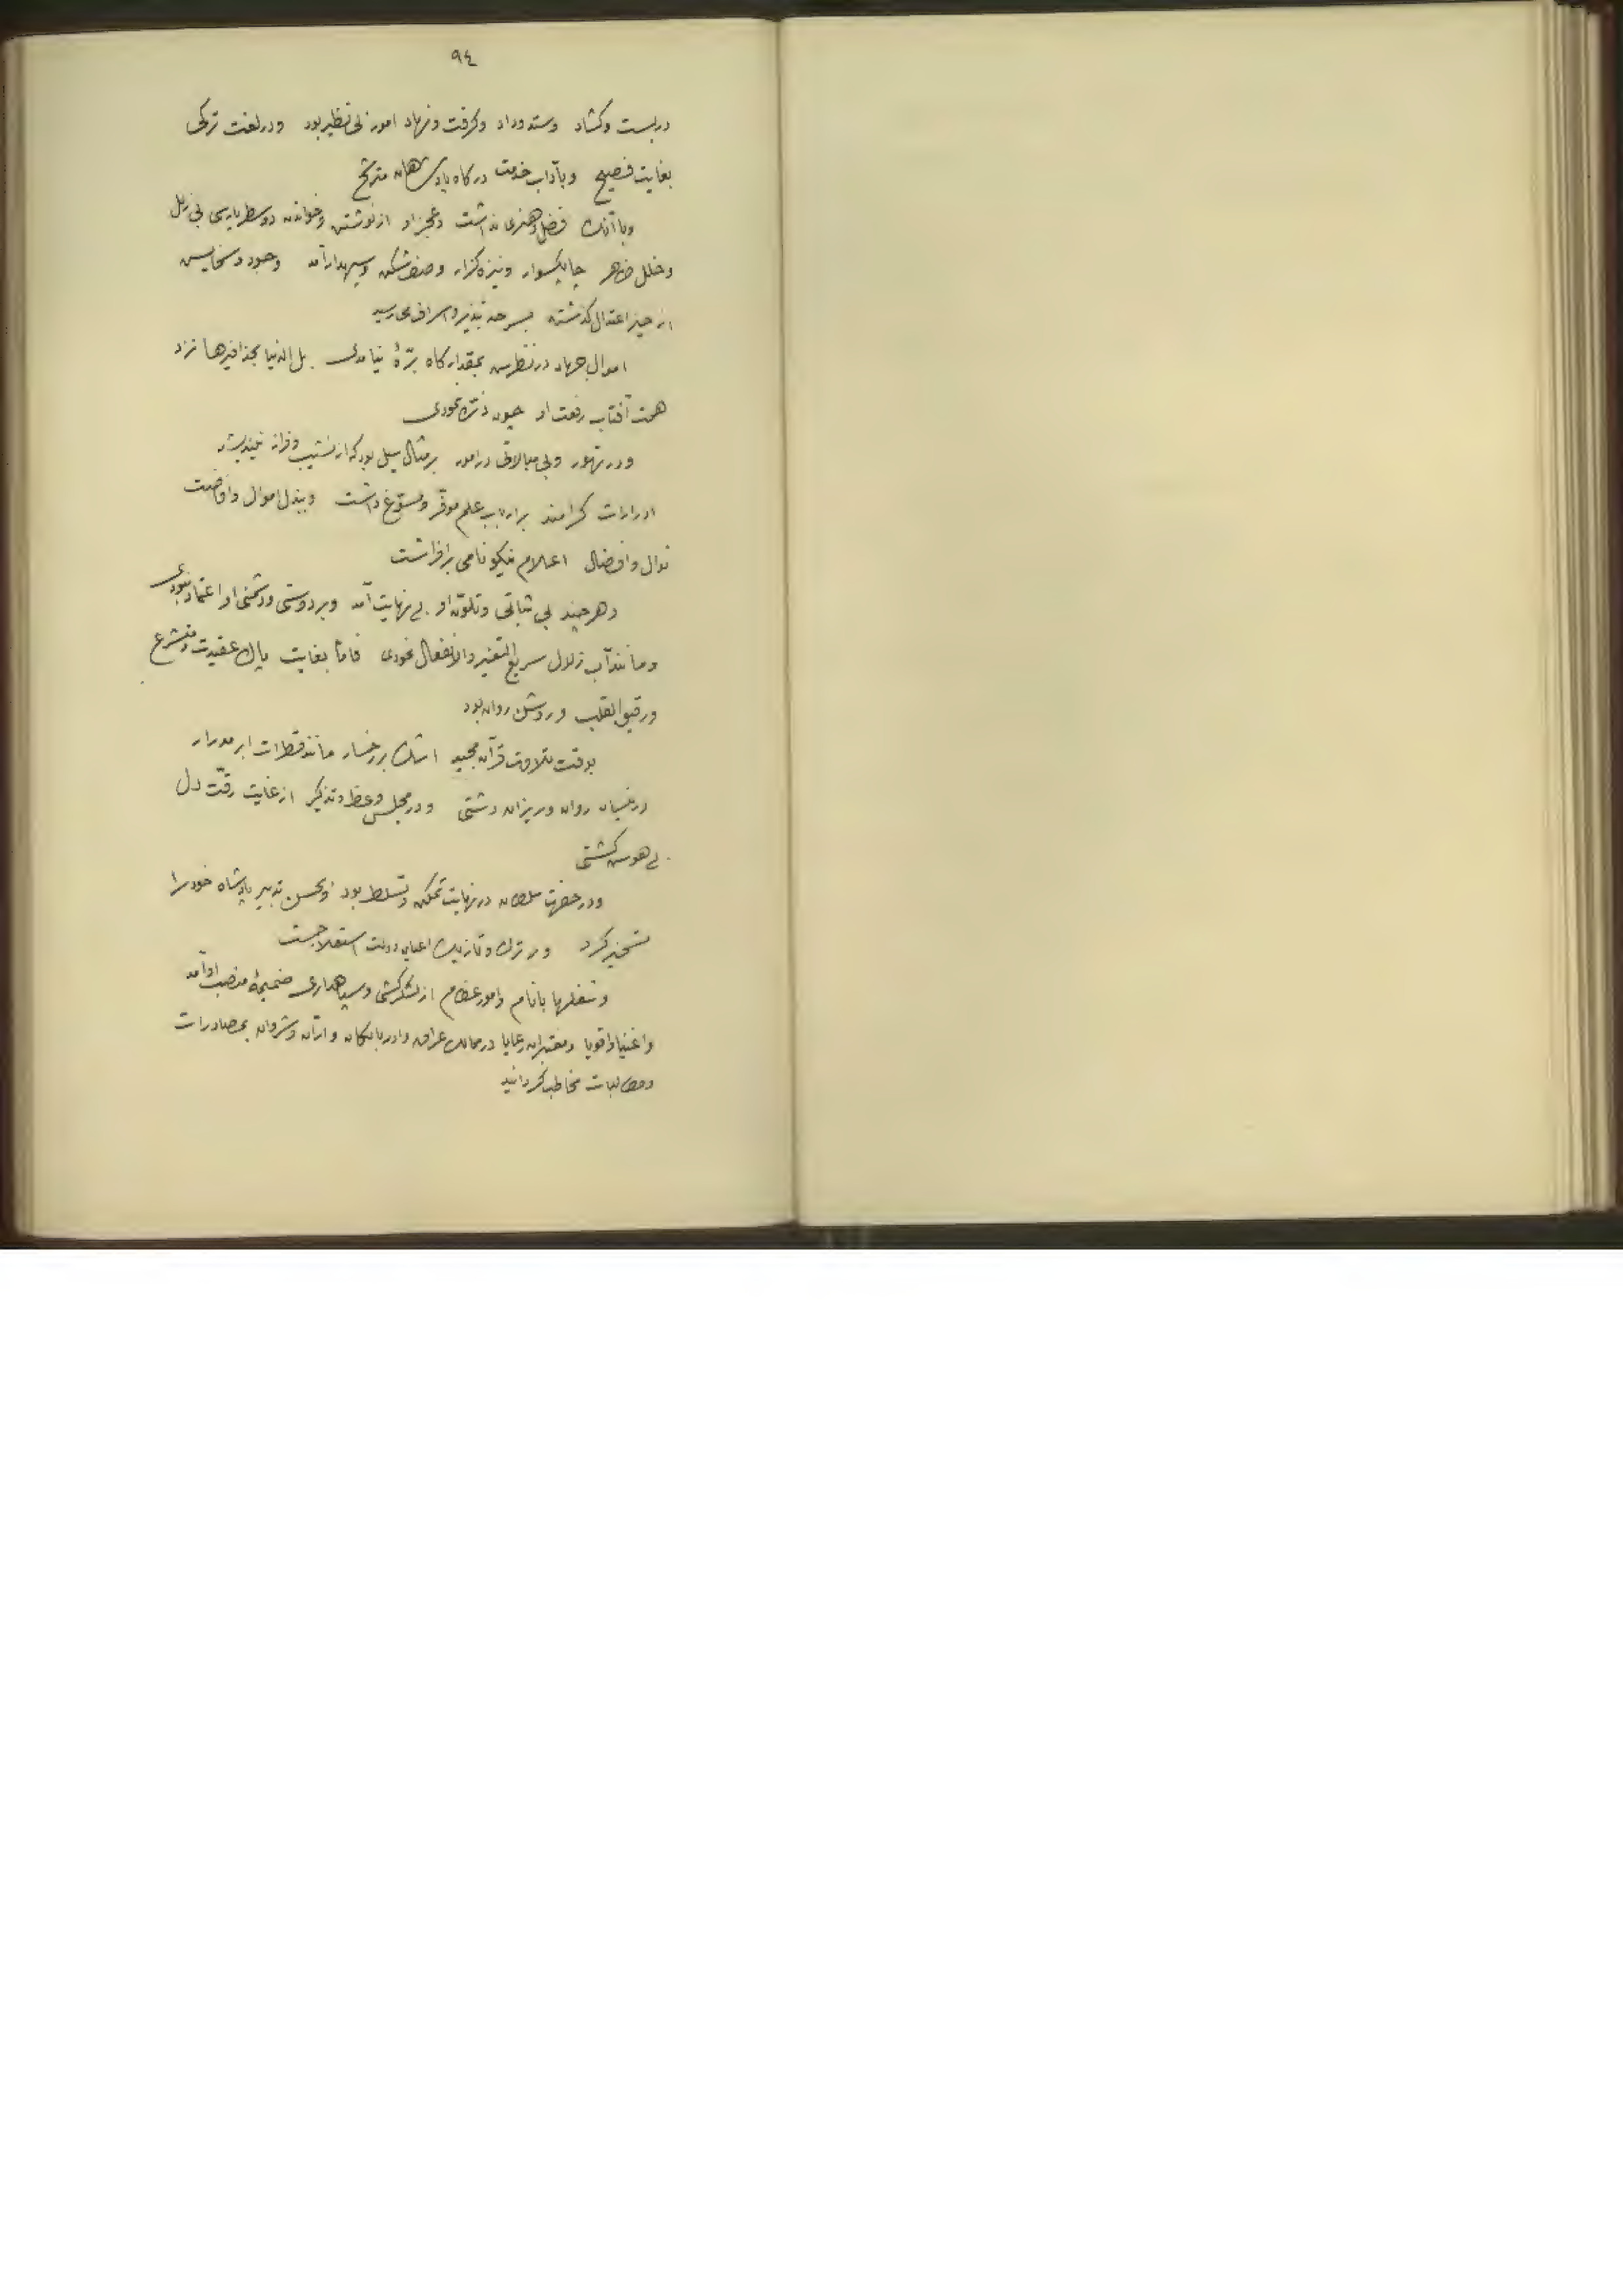 ٩٤
در بست و گشاد وستد وداد وگرفت ونهاد امور بی نظیر بود ودر لغت ترکی
بغایت فصیح وبآداب خدمت درگاه پادشاهان مترشح
وباآنک فضل وهنری نداشت وعجز او از نوشتن وخواندن دو سطر پارسی بی زلل
وخلل ظاهر چابکسوار ونیزه گزار وصف شکن وسپهدار آمد وجود وسخایش
از حیز اعتدال گذشته بسرحد تبذیر واسراف می رسید
اموال جهان در نظرش بمقدار کاه برّهٔ نیامدی بل الدنیا بحذافیرها نزد
همت آفتاب رفعت او چون ذرّه نمودی
ودر تهور وبی مبالاتی در امور بر مثال سیل بود که از نشیب وفراز نیندیشد
ادرارات گرامند بر ارباب علم موفّر ومسوّغ داشت وببذل اموال وافاضت
نوال وافضال اعلام نیکو نامی برافراشت
وهر چند بی ثباتی وتلوّن او بی نهایت آمد وبر دوستی ودشمنی او اعتماد نبودی
ومانند آب زلال سریع التغیر والانفعال نمودی فامّا بغایت پاک عقیدت ومتشرع
ورقیق القلب وروشن روان بود
بوقت تلاوت قرآن مجید اشک بر رخسار مانند قطرات ابر مدرار
در نیسان روان وریزان داشتی ودر مجلس وعظ وتذکیر از غایت رقّت دل
بی هوش گشتی
ودر حضرت سلطان در نهایت تمکن وتسلط بود وبحسن تدبیر پادشاه خود را
تسخیر کرد وبر ترک وتازیک اعیان دولت استعلا جست
وشغلهای بانام وامور عظام از لشکرکشی وسپاهداری ضمیمهٔ منصب او آمد
واغنیا واقویا ومعتبران رعایا در ممالک عراق وادربایگان وارّان وشروان بمصادرات
ومطالبات مخاطب گردانید